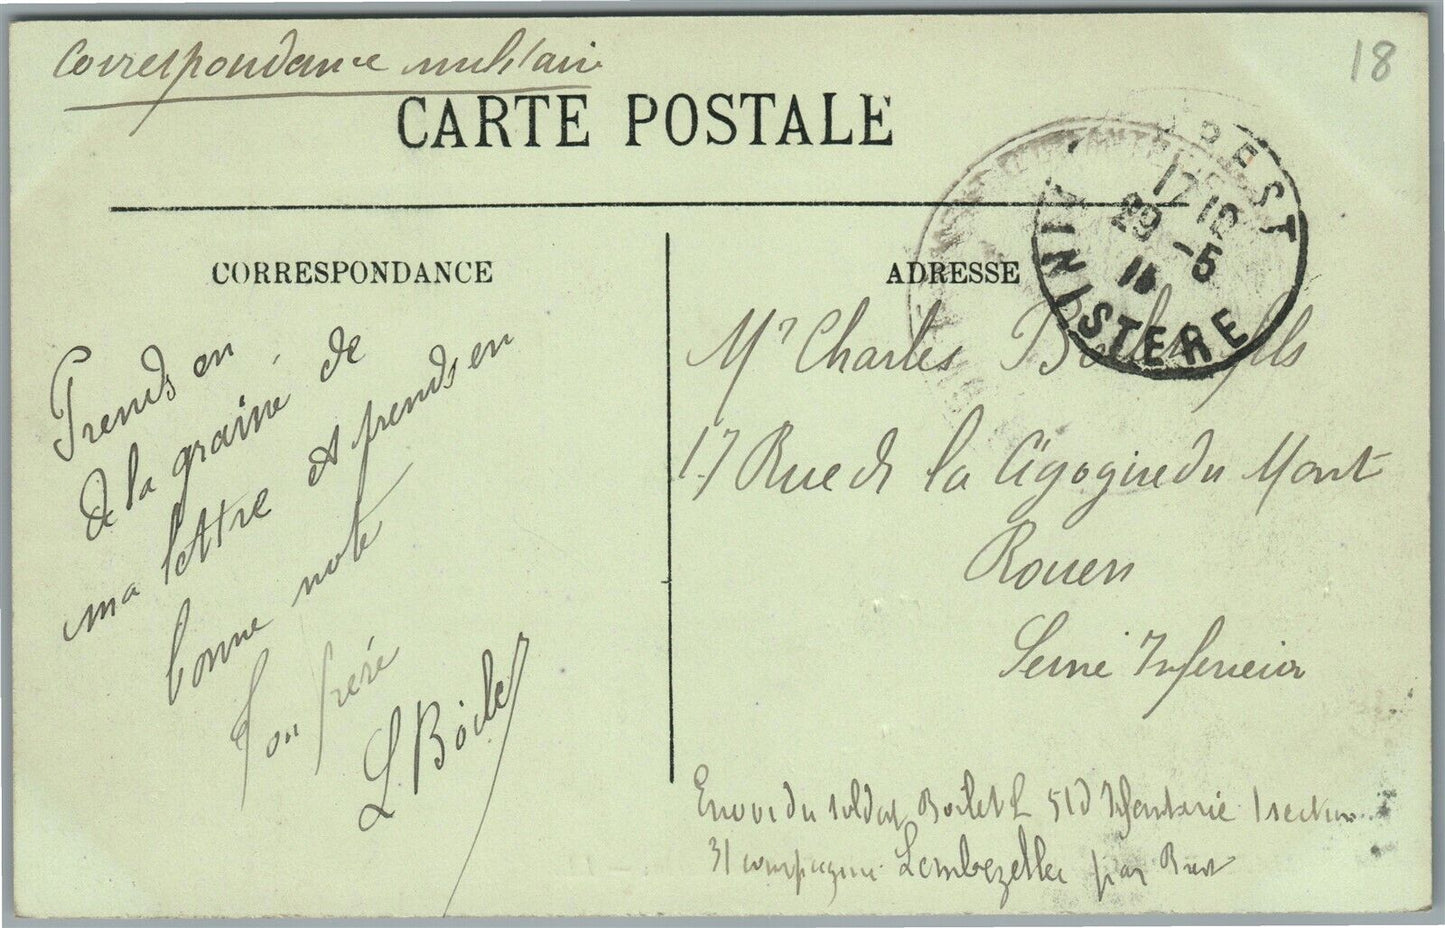 Correspondance militaire
18
CARTE POSTALE
BREST
17 10
29 -5
15
FINISTERE
CORRESPONDANCE
ADRESSE
Prends en
de la graine de
ma lettre et prends en
bonne note
Ton frère
L Boilet
Mr Charles Boilet fils
17 Rue de la Cigogne du Mont
Rouen
Seine Inferieur
Envoi du soldat Boilet L 51d Infanterie 1 section
31 compagnie Lembezellec par Brest